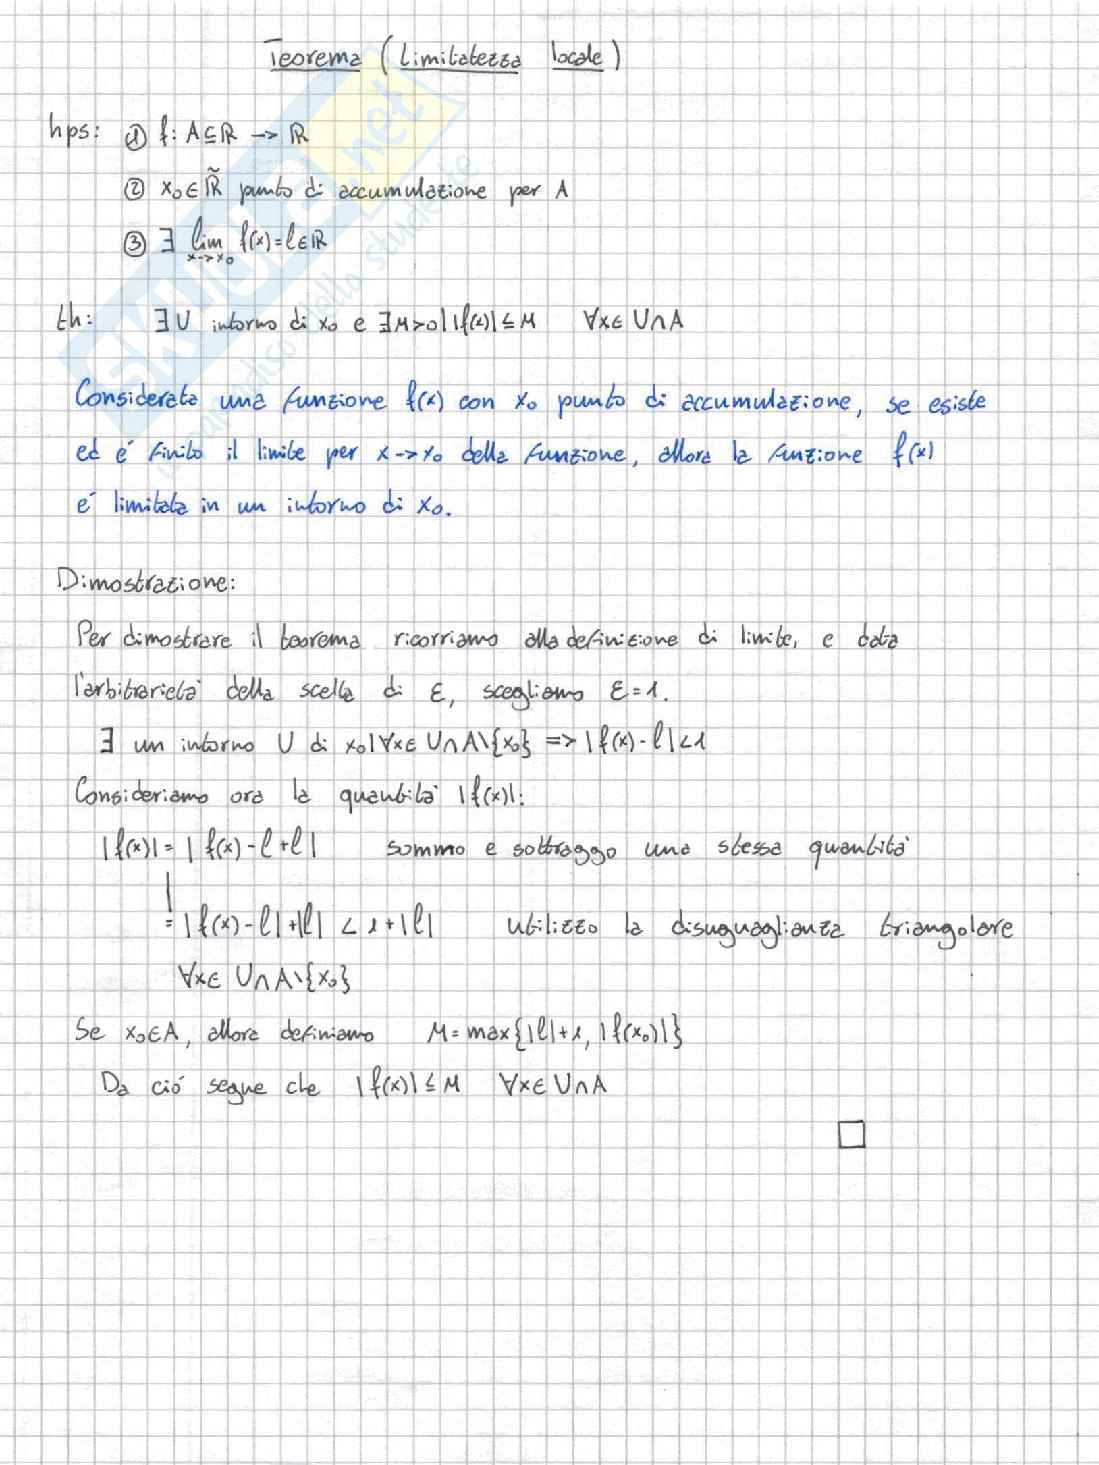 Teorema (Limitatezza locale)
hps: ① f: A⊆ℝ → ℝ
② x₀∈ℝ̃ punto di accumulazione per A
③ ∃ lim f(x)=ℓ∈ℝ
x→x₀
th: ∃U intorno di x₀ e ∃M>0 | |f(x)|≤M ∀x∈U∩A
Considerata una funzione f(x) con x₀ punto di accumulazione, se esiste
ed e' finito il limite per x→x₀ della funzione, allora la funzione f(x)
e' limitata in un intorno di x₀.
Dimostrazione:
Per dimostrare il teorema ricorriamo alla definizione di limite, e data
l'arbitrarieta' della scelta di ε, scegliamo ε=1.
∃ un intorno U di x₀|∀x∈U∩A\{x₀} => |f(x)-ℓ|<1
Consideriamo ora la quantita' |f(x)|:
|f(x)|=|f(x)-ℓ+ℓ| sommo e sottraggo una stessa quantita'
=|f(x)-ℓ|+|ℓ| < 1+|ℓ| utilizzo la disuguaglianza triangolare
∀x∈U∩A\{x₀}
Se x₀∈A, allora definiamo M=max{|ℓ|+1, |f(x₀)|}
Da ció segue che |f(x)|≤M ∀x∈U∩A
SKUOLA.net
paradiso dello studente